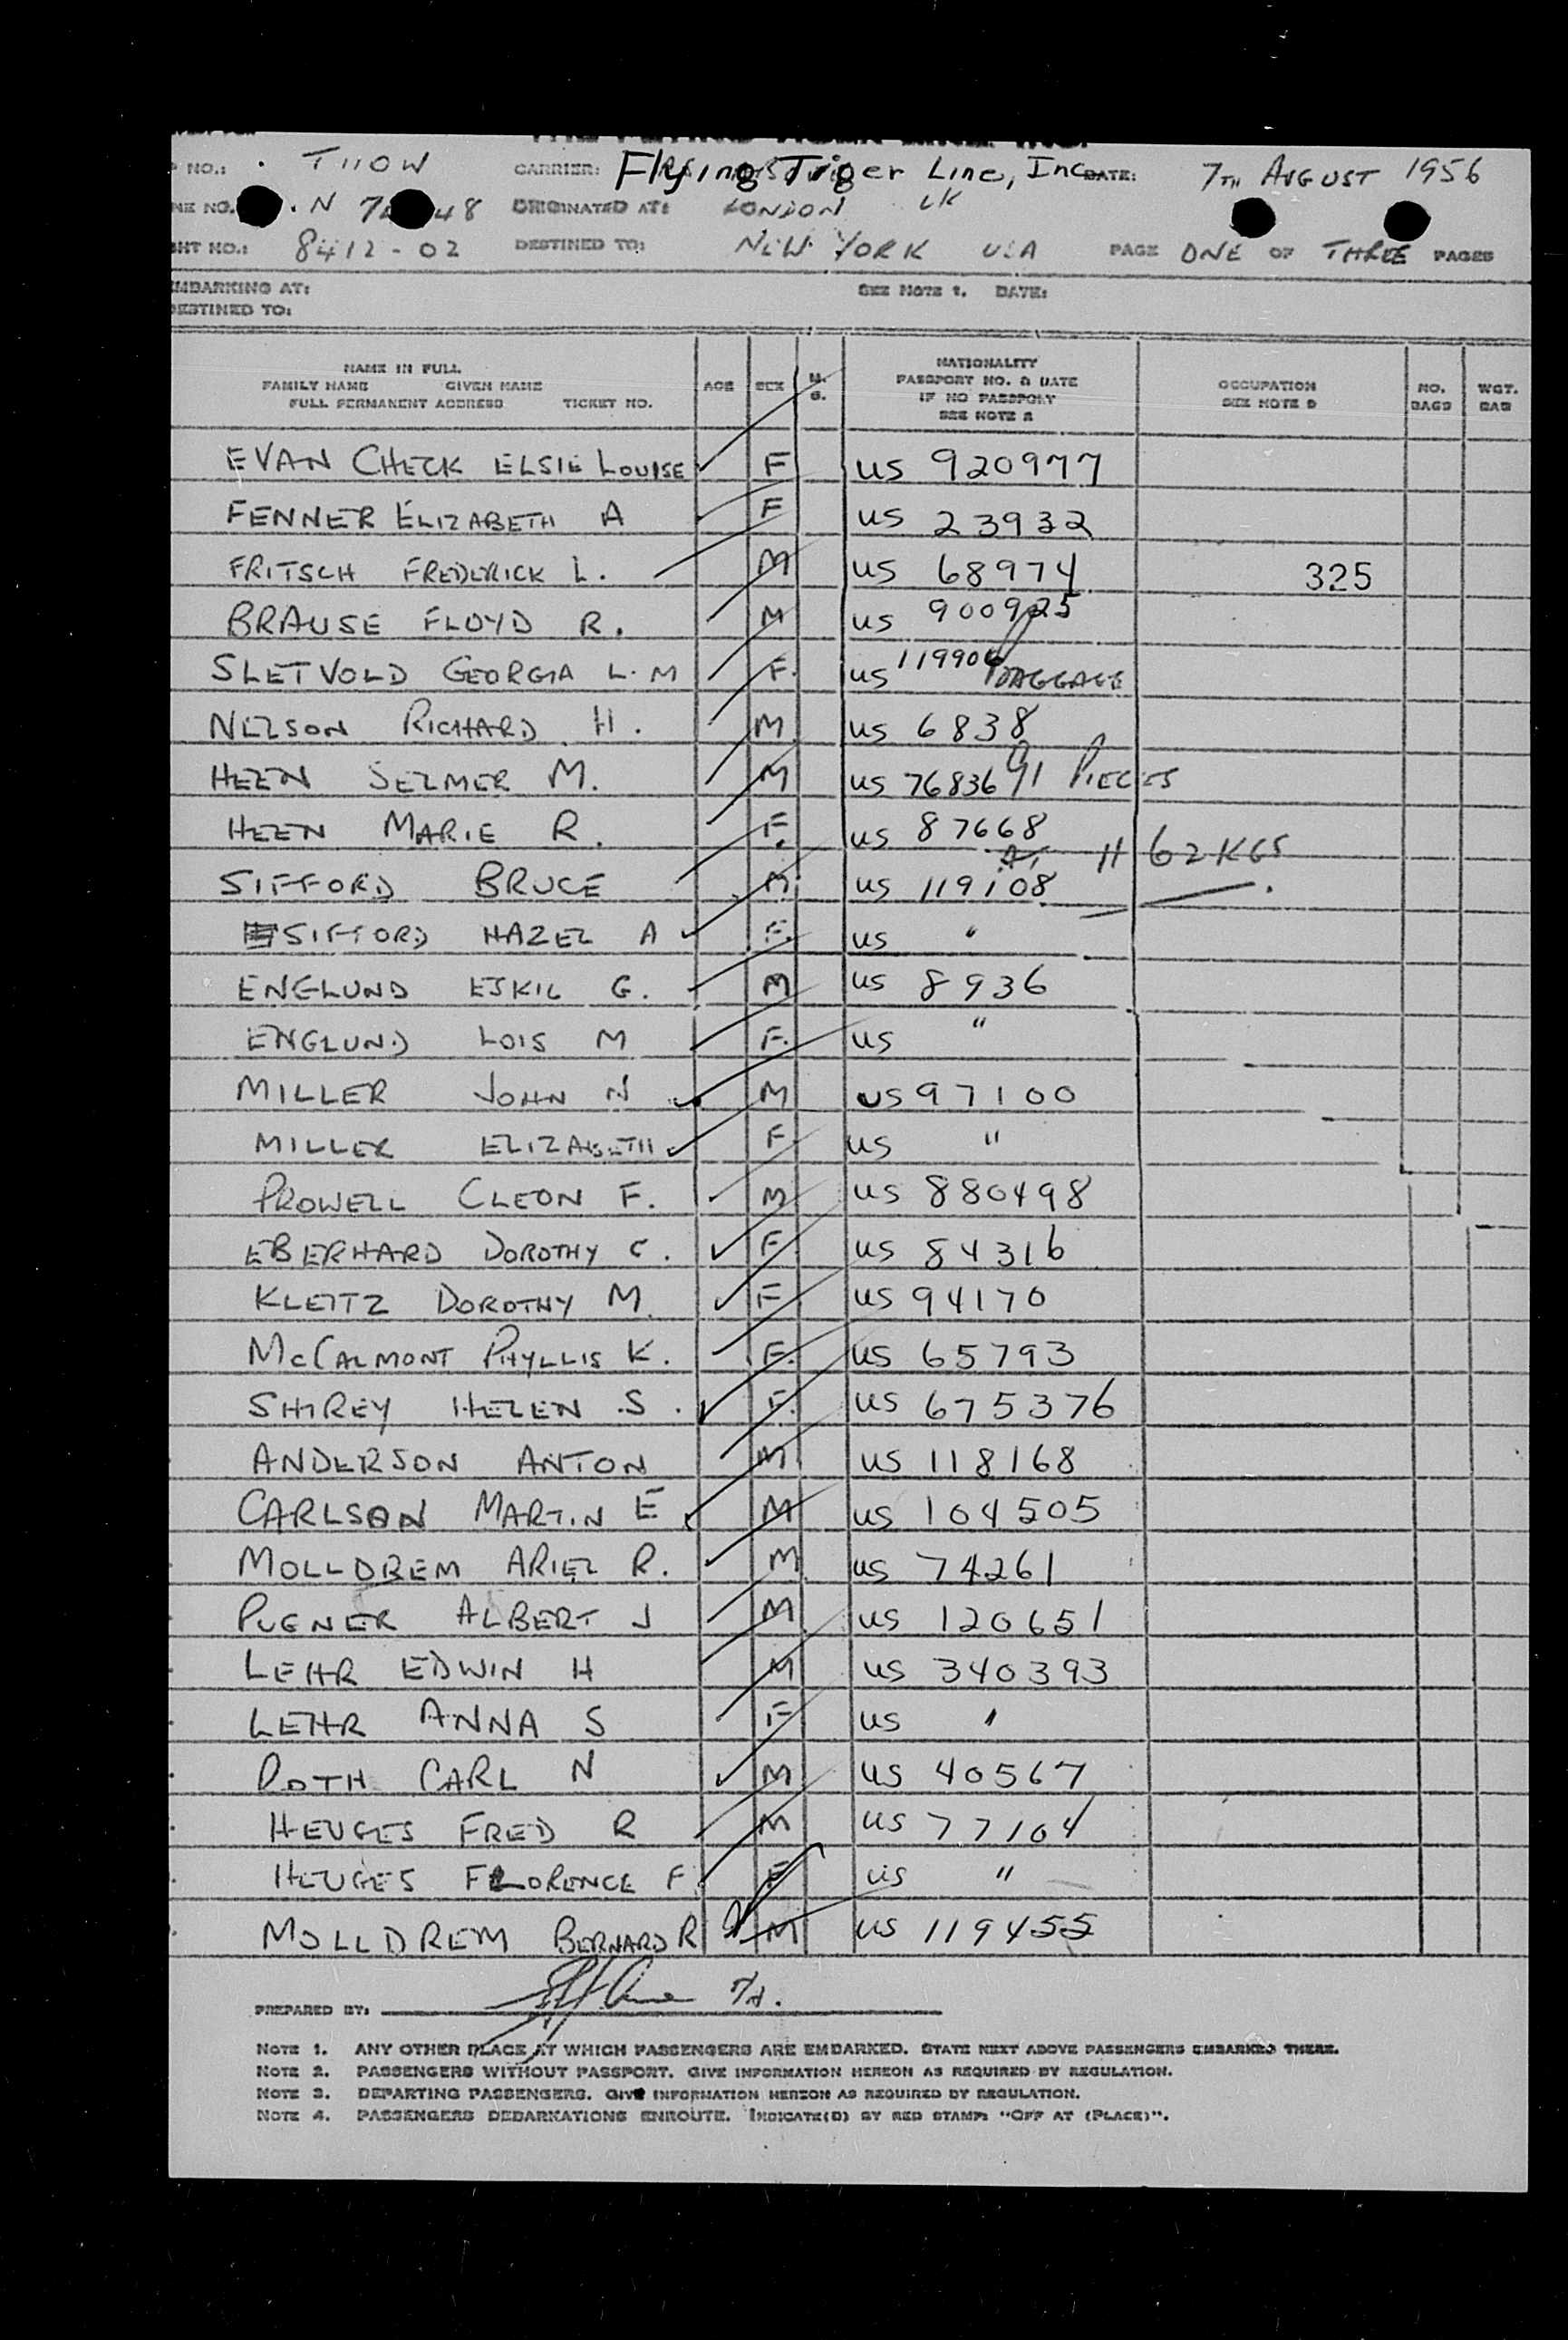 NO.: T110W CARRIER: Flying Tiger Line, Inc DATE: 7TH AUGUST 1956
NE NO. N 7 48 ORIGINATED AT: LONDON UK
HT NO.: 8412-02 DESTINED TO: NEW YORK USA PAGE ONE OF THREE PAGES
EMBARKING AT: SEE NOTE 1. DATE:
DESTINED TO:
NAME IN FULL
FAMILY NAME GIVEN NAME
FULL PERMANENT ADDRESS TICKET NO.
AGE SEX M. S.
NATIONALITY
PASSPORT NO. & DATE
IF NO PASSPORT
SEE NOTE 2
OCCUPATION
SEE NOTE 3
NO. BAGS
WGT. BAG
EVAN CHECK ELSIE LOUISE F US 920977
FENNER ELIZABETH A F US 23932
FRITSCH FREDERICK L. M US 68974 325
BRAUSE FLOYD R. M US 900925
SLETVOLD GEORGIA L. M F. US 119906 BAGGAGE
NELSON RICHARD H. M US 6838
HEEN SELMER M. M US 76836 91 PIECES
HEEN MARIE R. F. US 87668
AT 1162 KGS
SIFFORD BRUCE M US 119108
SIFFORD HAZEL A F. US "
ENGLUND ESKIL G. M US 8936
ENGLUND LOIS M F. US "
MILLER JOHN N M US 97100
MILLER ELIZABETH F US "
PROWELL CLEON F. M US 880498
EBERHARD DOROTHY C. F US 84316
KLEITZ DOROTHY M. F US 94170
McCALMONT PHYLLIS K. F. US 65793
SHIREY HELEN S. F. US 675376
ANDERSON ANTON M US 118168
CARLSON MARTIN E M US 104505
MOLLDREM ARIEL R. M US 74261
PUGNER ALBERT J M US 120651
LEHR EDWIN H M US 340393
LEHR ANNA S F US "
ROTH CARL N M US 40567
HEUGES FRED R M US 77104
HEUGES FLORENCE F. F US "
MOLLDREM BERNARD R M US 119455
PREPARED BY:
NOTE 1. ANY OTHER PLACE AT WHICH PASSENGERS ARE EMBARKED. STATE NEXT ABOVE PASSENGERS EMBARKED THERE.
NOTE 2. PASSENGERS WITHOUT PASSPORT. GIVE INFORMATION HEREON AS REQUIRED BY REGULATION.
NOTE 3. DEPARTING PASSENGERS. GIVE INFORMATION HEREON AS REQUIRED BY REGULATION.
NOTE 4. PASSENGERS DEBARKATIONS ENROUTE. INDICATE(D) BY RED STAMP: "OFF AT (PLACE)".